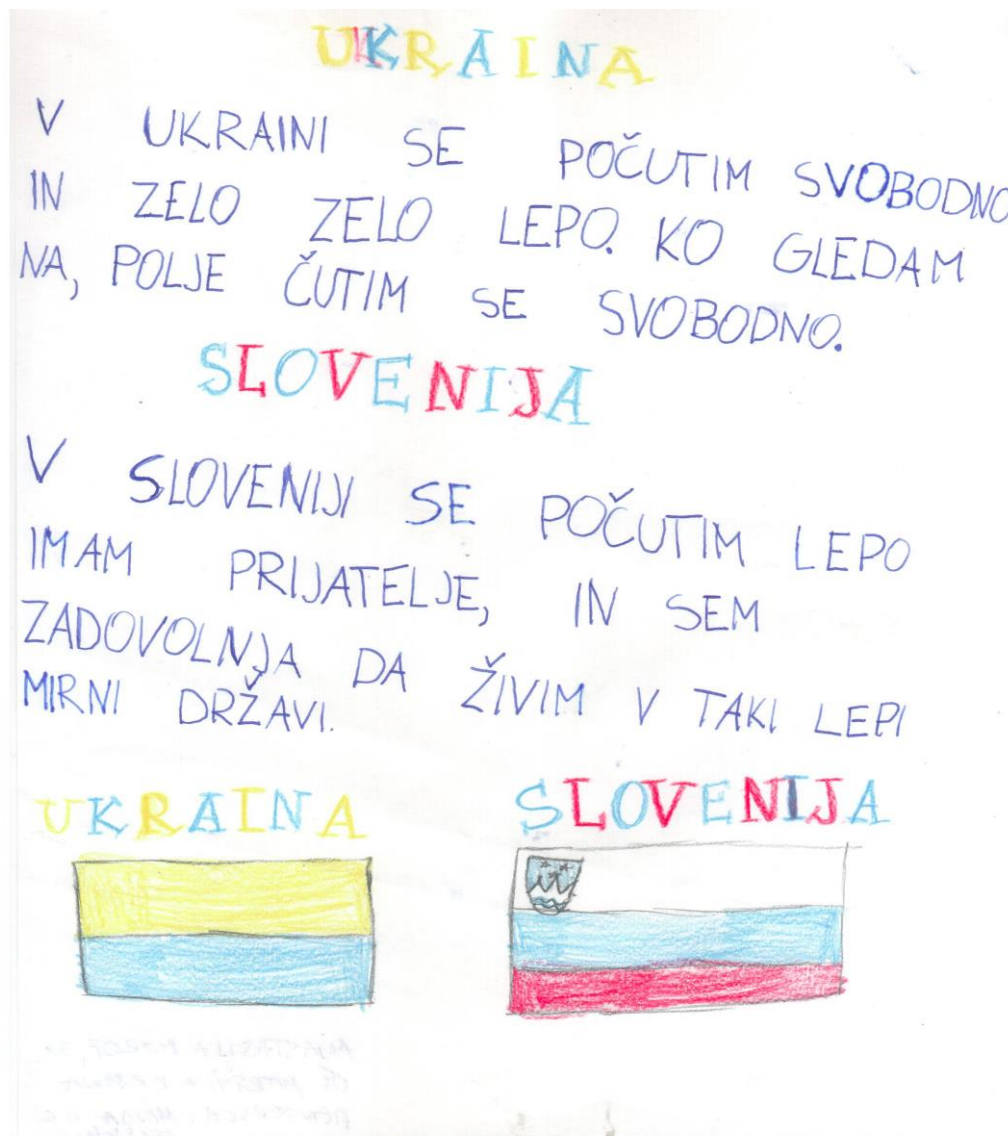 UKRAINA
V UKRAINI SE POČUTIM SVOBODNO
IN ZELO ZELO LEPO. KO GLEDAM
NA, POLJE ČUTIM SE SVOBODNO.
SLOVENIJA
V SLOVENIJI SE POČUTIM LEPO
IMAM PRIJATELJE, IN SEM
ZADOVOLNJA DA ŽIVIM V TAKI LEPI
MIRNI DRŽAVI.
UKRAINA SLOVENIJA